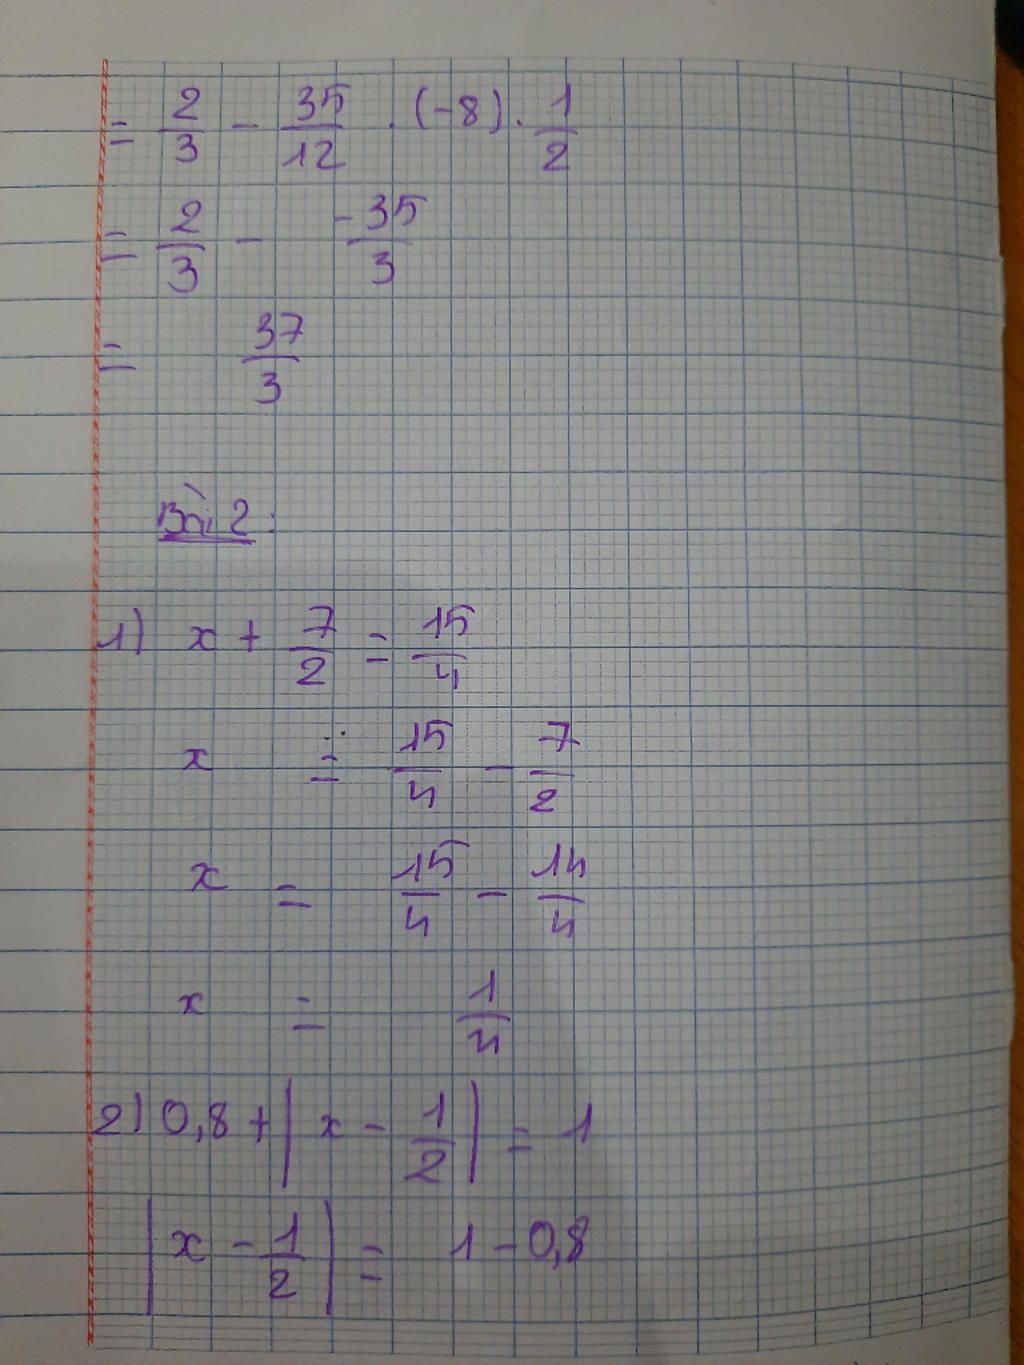 = 2/3 - 35/12 . (-8) . 1/2
= 2/3 - -35/3
= 37/3
Bài 2:
1) x + 7/2 = 15/4
x = 15/4 - 7/2
x = 15/4 - 14/4
x = 1/4
2) 0,8 + | x - 1/2 | = 1
| x - 1/2 | = 1 - 0,8